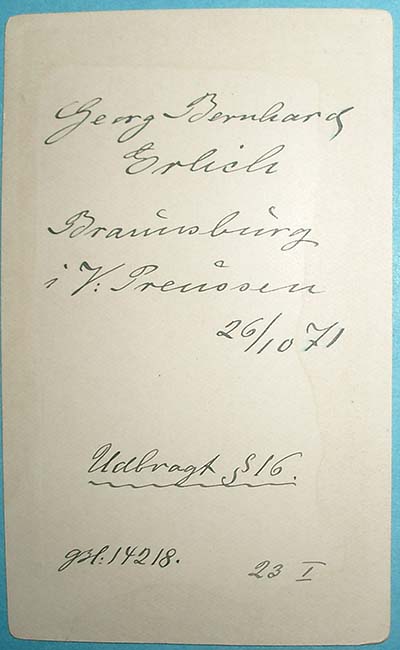 Georg Bernhard
Erlich
Braunsburg
i V: Preussen
26/10 71
Udbragt § 16.
gsl: 14218.
23 I